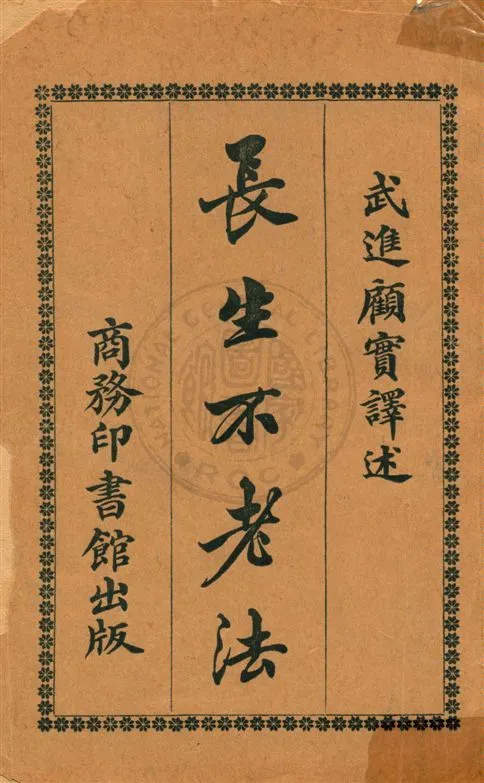 武進顧實譯述
長生不老法
商務印書館出版
NATIONAL CENTRAL LIBRARY
R.O.C